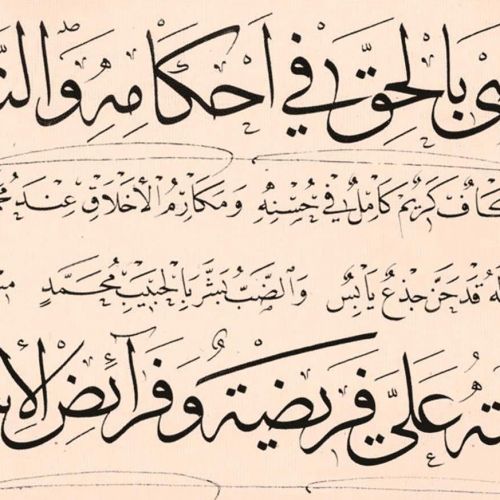 بِالْحَقِّ فِي اَحْكَامِهِ وَ
كَرِيمٌ كَامِلٌ فِي حُسْنِهِ وَمَكَارِمُ الْأَخْلَاقِ عِنْدَ
قَدْ حَنَّ جِذْعٌ يَابِسٌ وَالضَّبُّ بَشَّرَ بِالْحَبِيبِ مُحَمَّدٍ
عَلَيَّ فَرِيضَةٌ وَفَرَآئِضُ